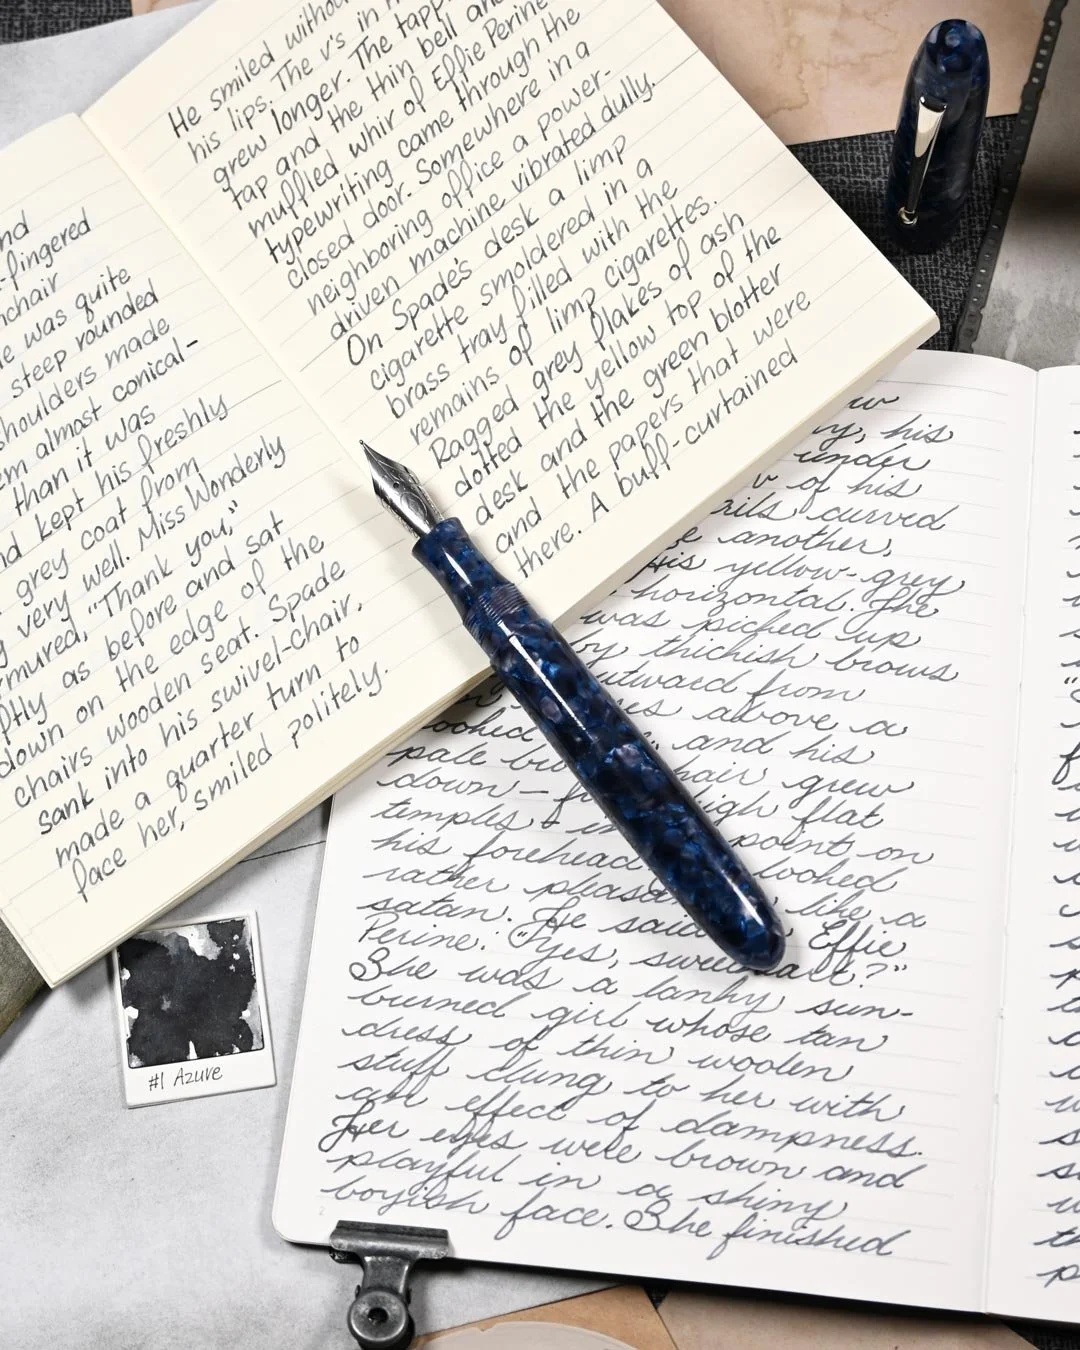 and
-fingered
chair
e was quite
steep rounded
shoulders made
em almost conical-
than it was
nd kept his freshly
grey coat from
g very well. Miss Wonderly
rmured, "Thank you,"
ptly as before and sat
down on the edge of the
chairs wooden seat. Spade
sank into his swivel-chair,
made a quarter turn to
face her, smiled politely.
He smiled without
his lips. The v's in h
grew longer. The tapp-
tap and the thin bell and
muffled whir of Effie Perine
typewriting came through the
closed door. Somewhere in a
neighboring office a power-
driven machine vibrated dully.
On Spade's desk a limp
cigarette smoldered in a
brass tray filled with the
remains of limp cigarettes.
Ragged grey flakes of ash
dotted the yellow top of the
desk and the green blotter
and the papers that were
there. A buff-curtained
w
y, his
under
v of his
rils curved
e another,
His yellow-grey
horizontal. The
was picked up
by thickish brows
utward from
es above a
looked and his
pale hair grew
down - high flat
temples - in point on
his forehead looked
rather pleasan like a
satan. He said Effie
Perine: "Yes, sweetheart?"
She was a lanky sun-
burned girl whose tan
dress of thin woolen
stuff clung to her with
an effect of dampness.
Her eyes were brown and
playful in a shiny
boyish face. She finished
2
#1 Azure